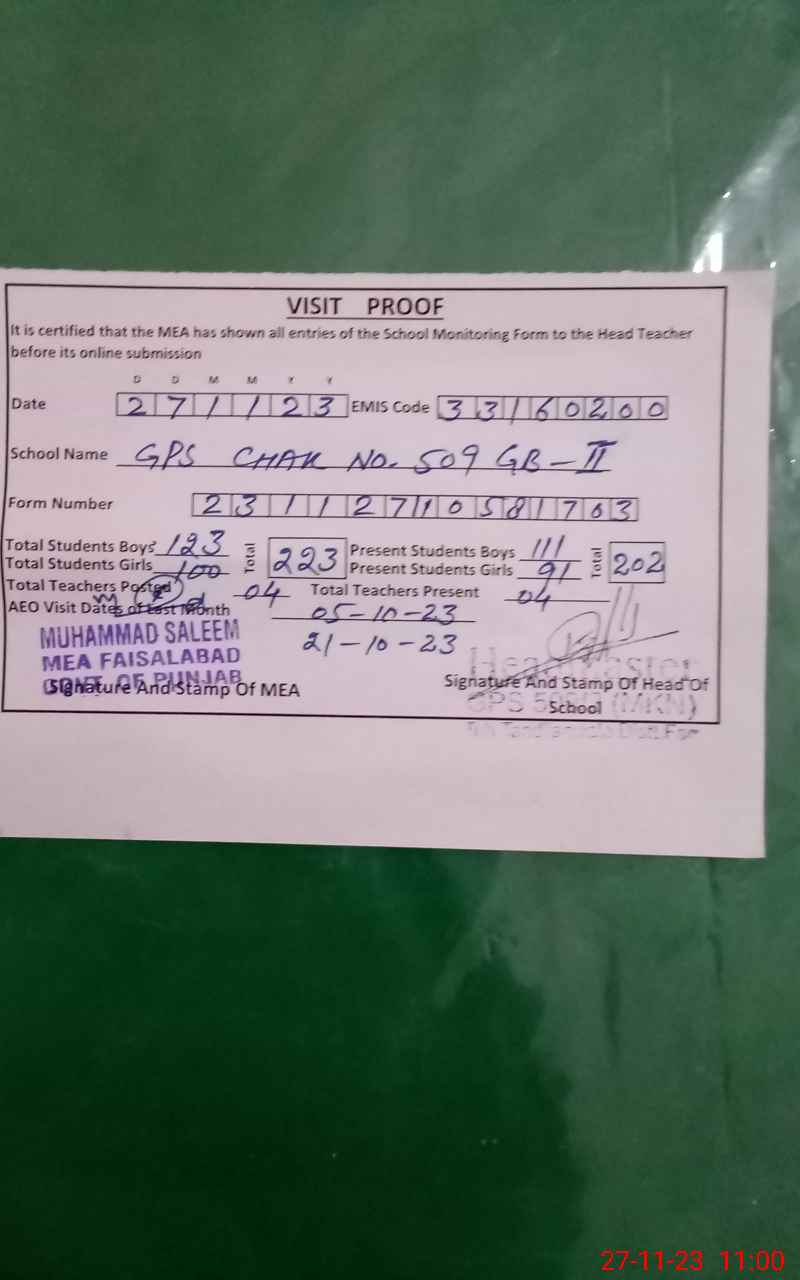 VISIT PROOF
It is certified that the MEA has shown all entries of the School Monitoring Form to the Head Teacher
before its online submission
D D M M Y Y
Date 271123 EMIS Code 33160200
School Name GPS CHAK NO. 509 GB-II
Form Number 23112710581703
Total Students Boys 123 Total 223 Present Students Boys 111 Total 202
Total Students Girls 100 Present Students Girls 91
Total Teachers Posted 04 Total Teachers Present 04
AEO Visit Dates of Last Month 05-10-23
21-10-23
MUHAMMAD SALEEM
MEA FAISALABAD
GOVT. OF PUNJAB
Signature And Stamp Of MEA
Head Master
Signature And Stamp Of Head Of
School
GPS (MKN)
27-11-23 11:00